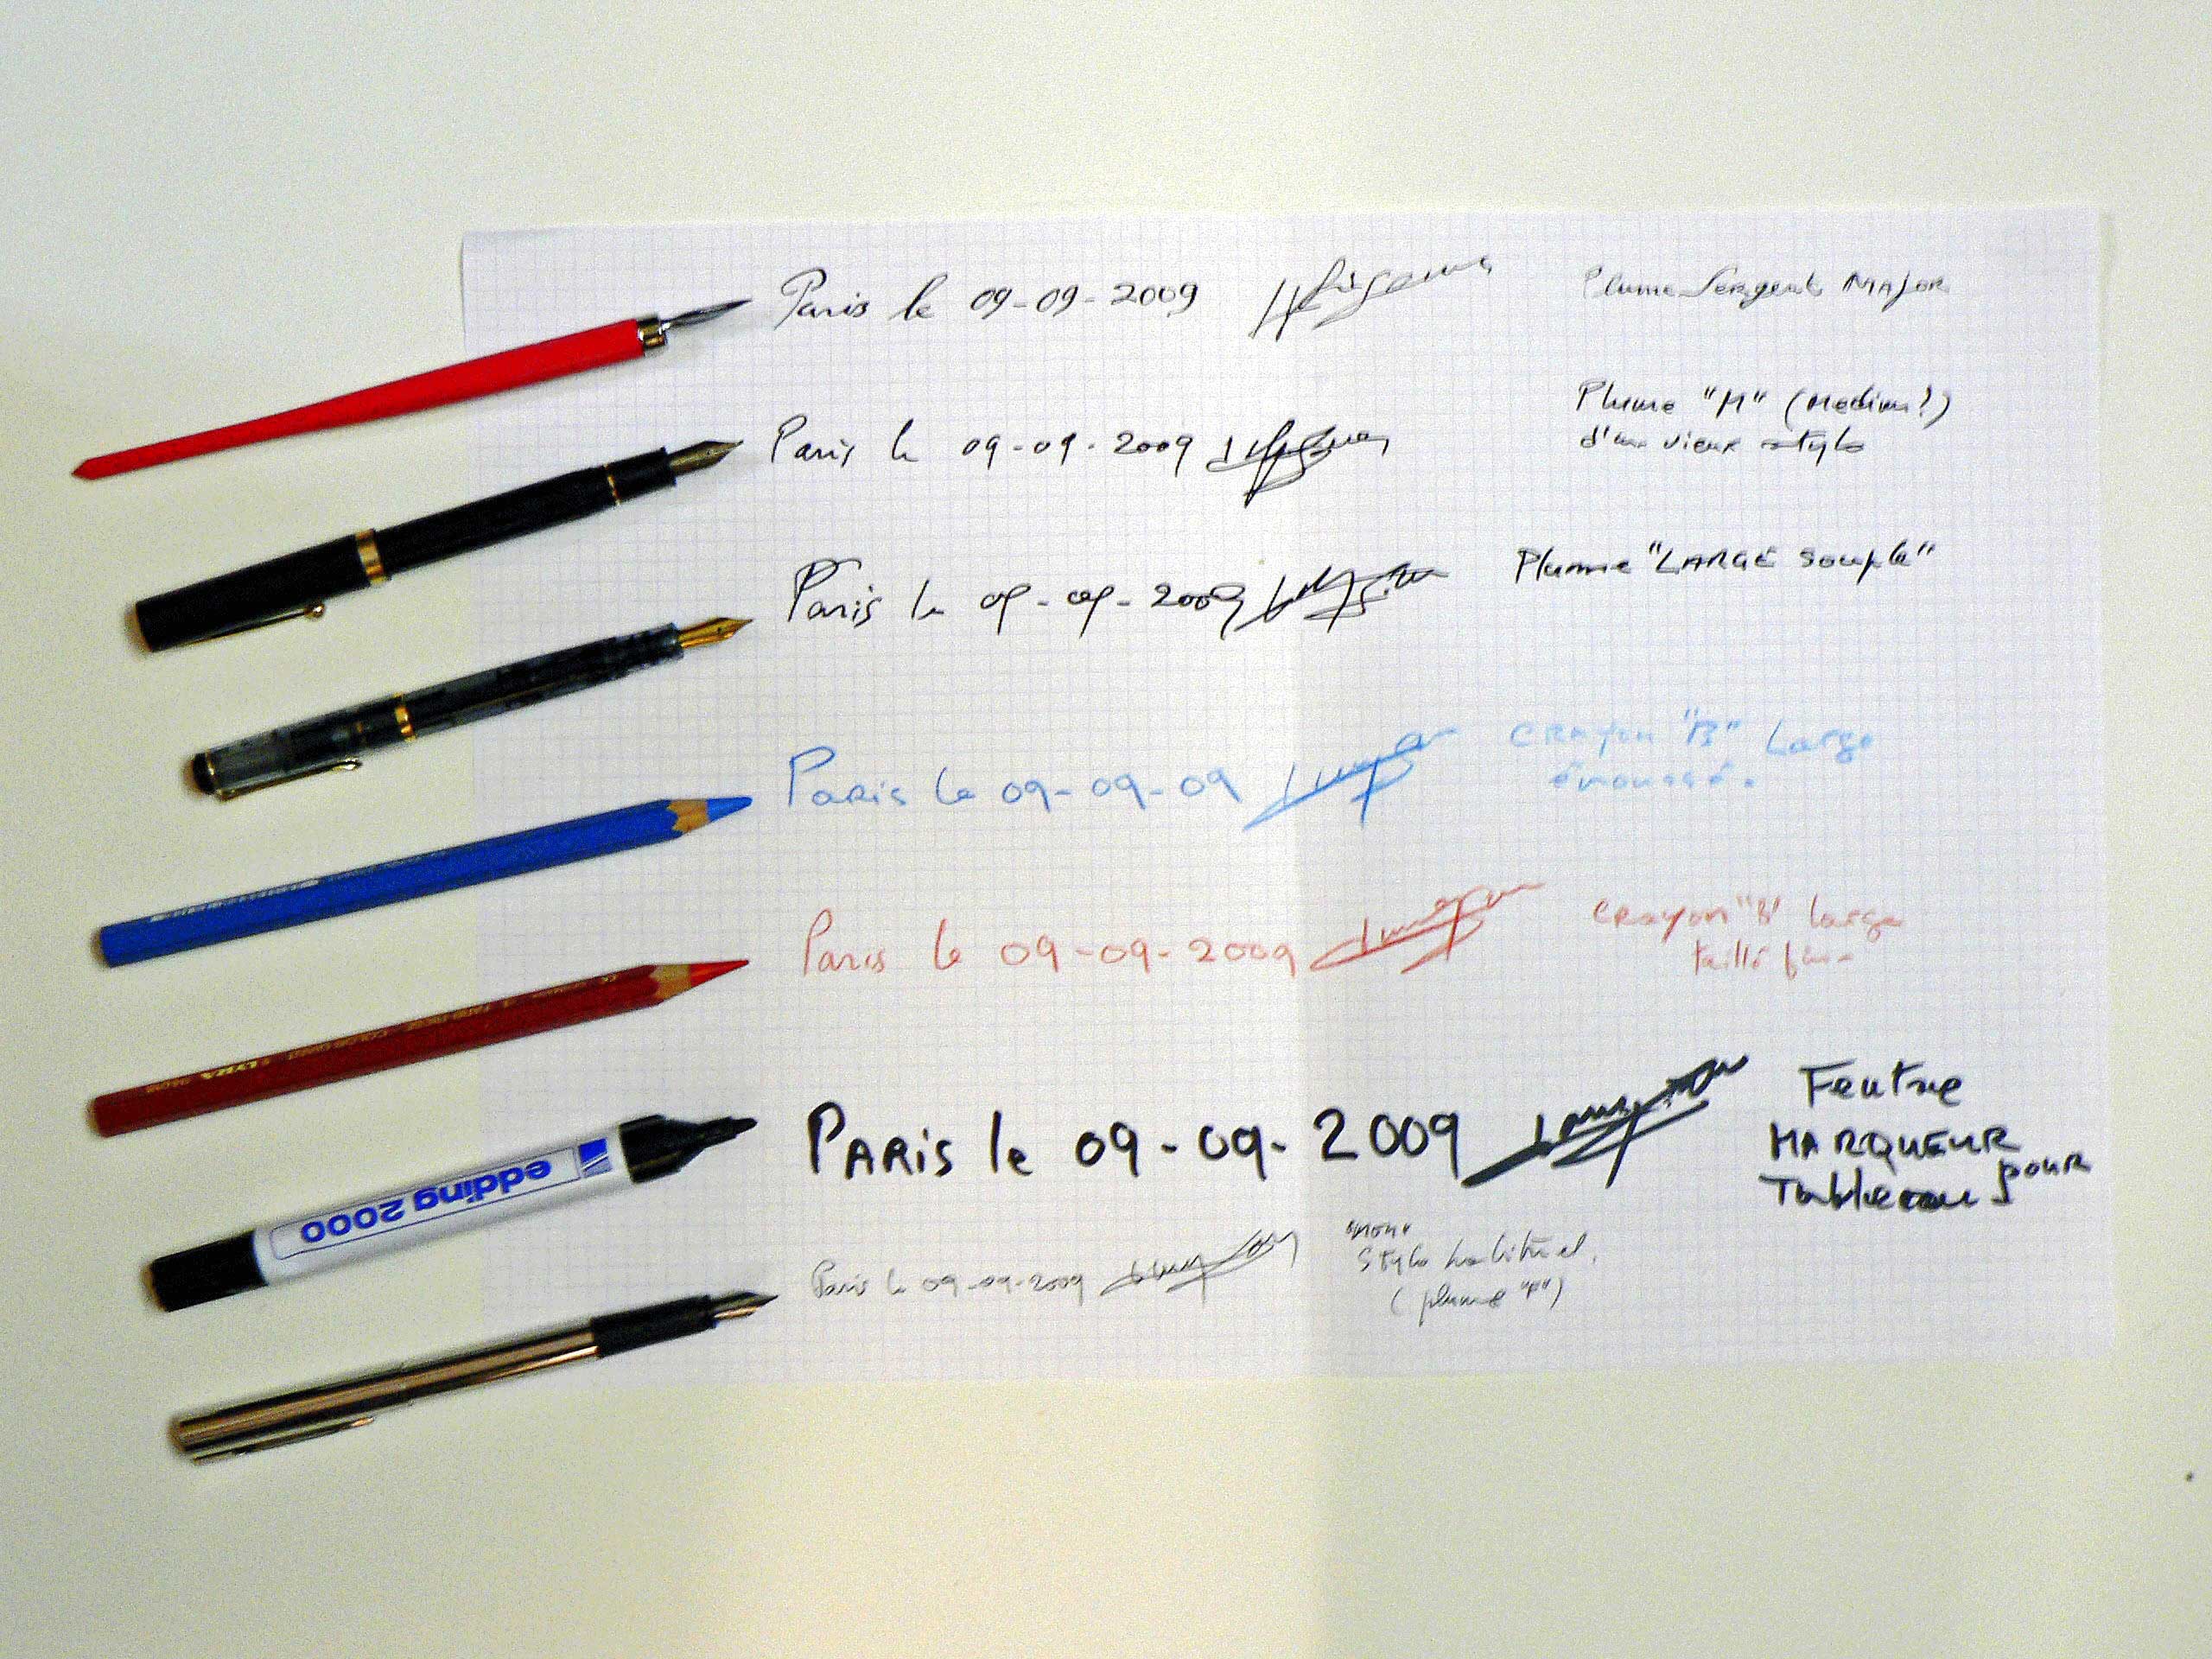 Paris le 09-09-2009 Plume Sergent MAJOR
Paris le 09-09-2009 Plume "M" (Medium?)
d'un vieux stylo
Paris le 09-09-2009 Plume "LARGE Souple"
Paris le 09-09-09 Crayon "B" Large
émoussé.
Paris le 09-09-2009 Crayon "B" large
taillé fin-
PARis le 09-09-2009 Feutre
MARQUEUR
pour
Tableau
edding 2000
Paris le 09-09-2009 "mon"
Stylo habituel.
(plume "F")
LYRA